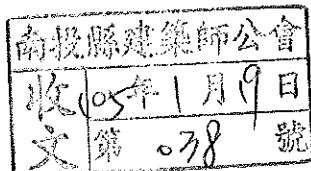 南投縣建築師公會
收文
105年1月19日
第038號